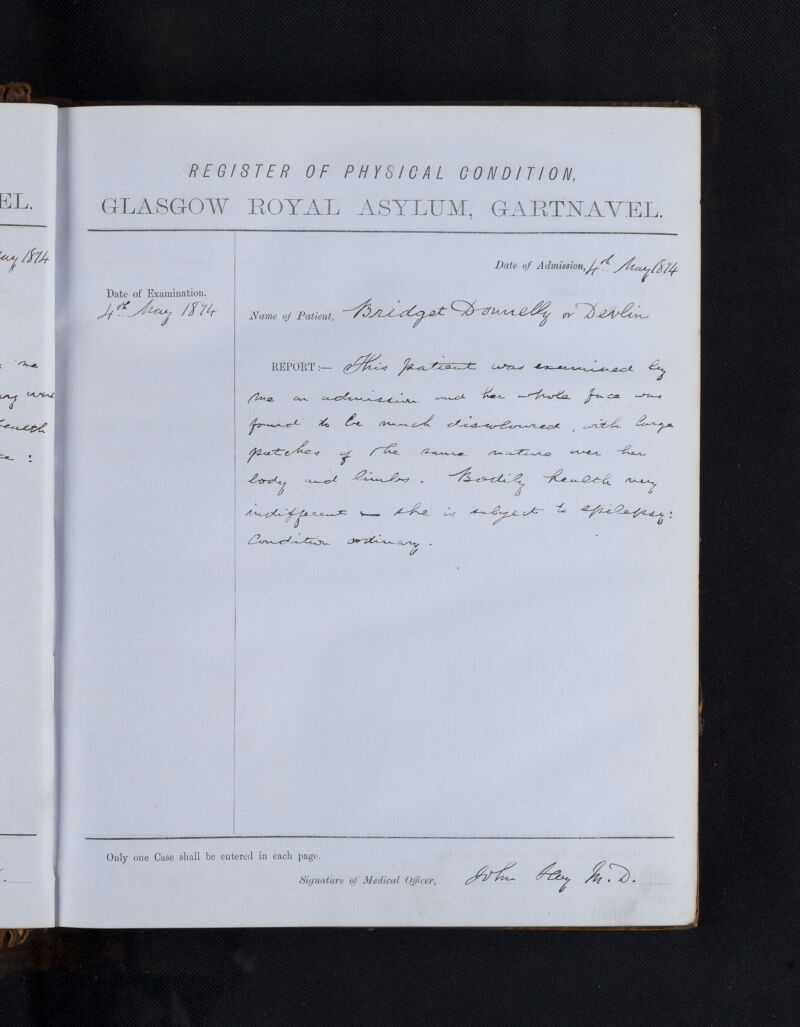 EL.
1874
me
were
health
:
REGISTER OF PHYSICAL CONDITION,
GLASGOW ROYAL ASYLUM, GARTNAVEL.
Date of Admission, 4th May 1874
Date of Examination.
4th May 1874
Name of Patient, Bridget Donnelly or Devlin
REPORT:— This patient was examined by
me on admission and her whole face was
found to be much discoloured, with large
patches of the same nature over her
body and limbs. Bodily health very
indifferent — she is subject to epilepsy:
Condition ordinary.
Only one Case shall be entered in each page.
Signature of Medical Officer, John M.D.